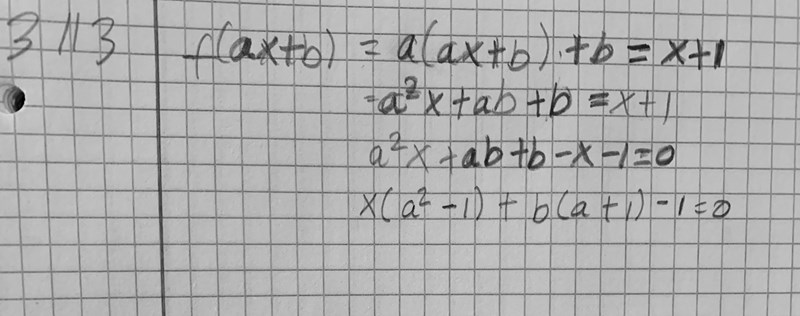 3113 f(ax+b) = a(ax+b)+b = x+1
=a²x+ab+b=x+1
a²x+ab+b-x-1=0
x(a²-1)+b(a+1)-1=0